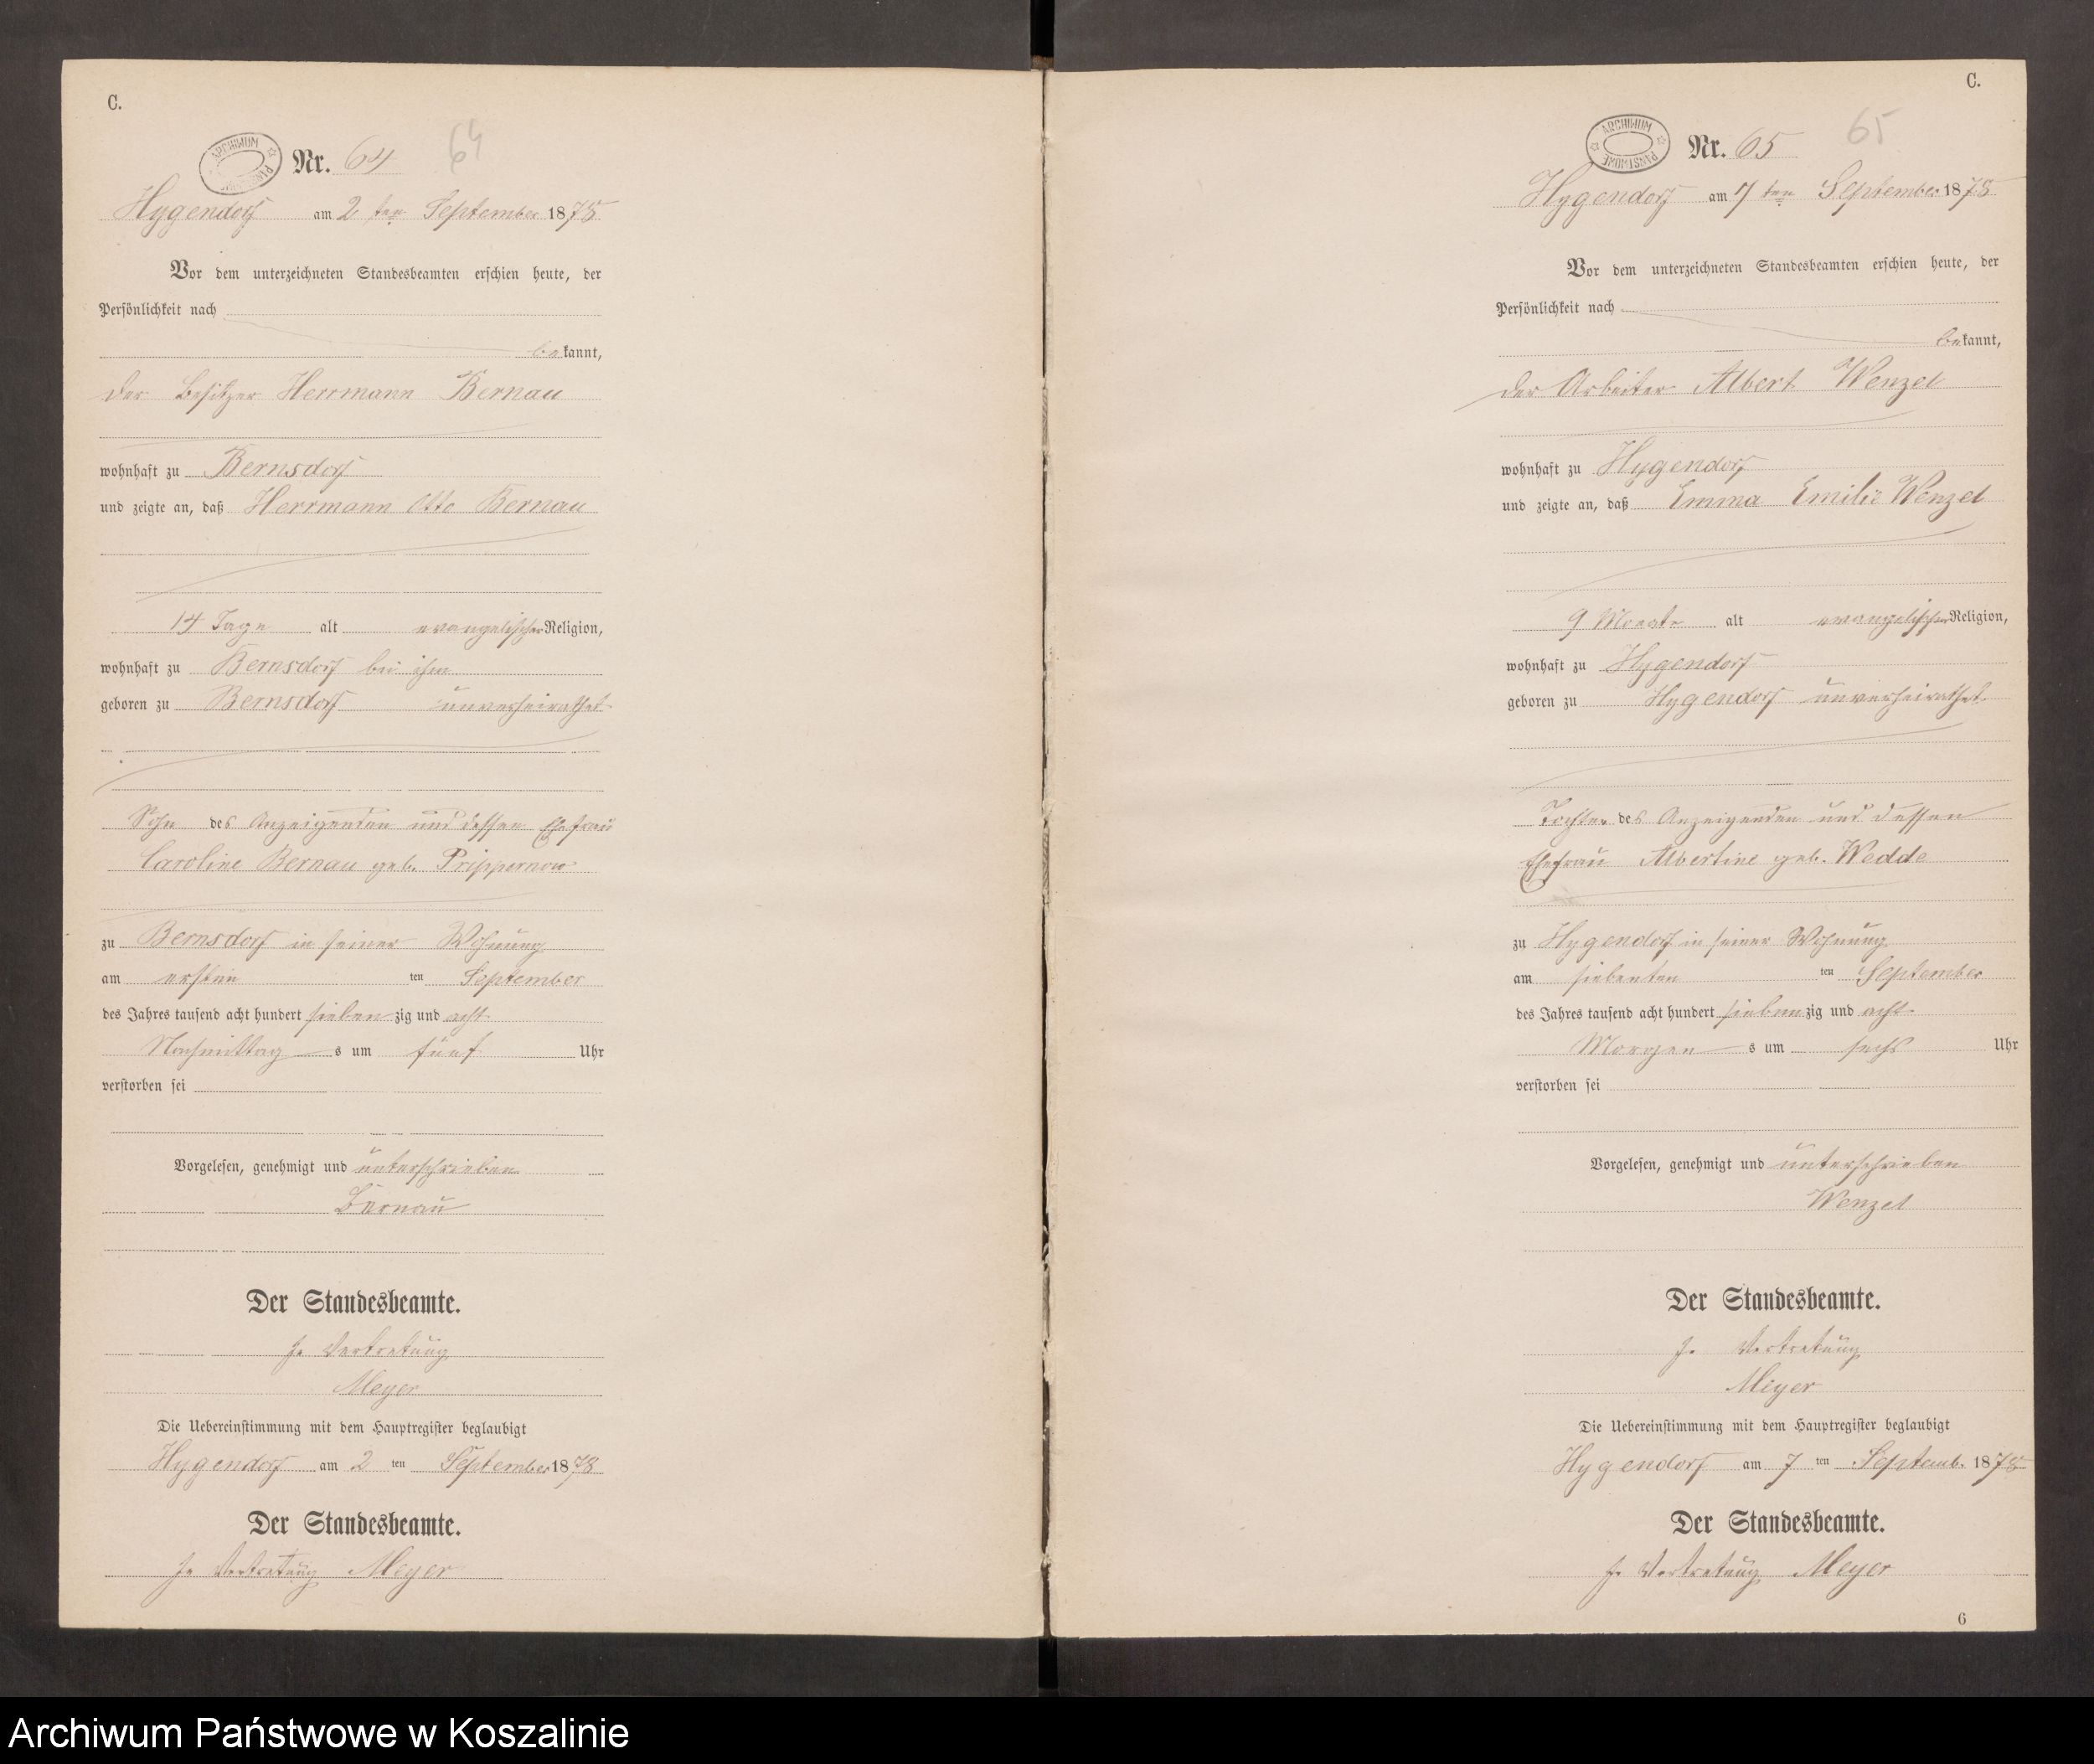 C.
ARCHIWUM PAŃSTWOWE
Nr. 64
64
Hygendorf am 2 ten September 1878
Vor dem unterzeichneten Standesbeamten erschien heute, der
Persönlichkeit nach
bekannt,
der Besitzer Herrmann Bernau
wohnhaft zu Bernsdorf
und zeigte an, daß Herrmann Otto Bernau
14 Tage alt evangelischer Religion,
wohnhaft zu Bernsdorf bei ihm
geboren zu Bernsdorf unverheirathet
Sohn des Anzeigenden und dessen Ehefrau
Caroline Bernau geb. Prippernow
zu Bernsdorf in seiner Wohnung
am ersten ten September
des Jahres tausend acht hundert siebenzig und acht
Nachmittag s um fünf Uhr
verstorben sei
Vorgelesen, genehmigt und unterschrieben
Bernau
Der Standesbeamte.
In Vertretung
Meyer
Die Uebereinstimmung mit dem Hauptregister beglaubigt
Hygendorf am 2 ten September 1878
Der Standesbeamte.
In Vertretung Meyer
C.
ARCHIWUM PAŃSTWOWE
Nr. 65
65
Hygendorf am 7 ten September 1878
Vor dem unterzeichneten Standesbeamten erschien heute, der
Persönlichkeit nach
bekannt,
der Arbeiter Albert Wenzel
wohnhaft zu Hygendorf
und zeigte an, daß Emma Emilie Wenzel
9 Monate alt evangelischer Religion,
wohnhaft zu Hygendorf
geboren zu Hygendorf unverheirathet
Tochter des Anzeigenden und dessen
Ehefrau Albertine geb. Wedde
zu Hygendorf in seiner Wohnung
am siebenten ten September
des Jahres tausend acht hundert siebenzig und acht
Morgen s um sechs Uhr
verstorben sei
Vorgelesen, genehmigt und unterschrieben
Wenzel
Der Standesbeamte.
In Vertretung
Meyer
Die Uebereinstimmung mit dem Hauptregister beglaubigt
Hygendorf am 7 ten Septemb. 1878
Der Standesbeamte.
In Vertretung Meyer
6
Archiwum Państwowe w Koszalinie